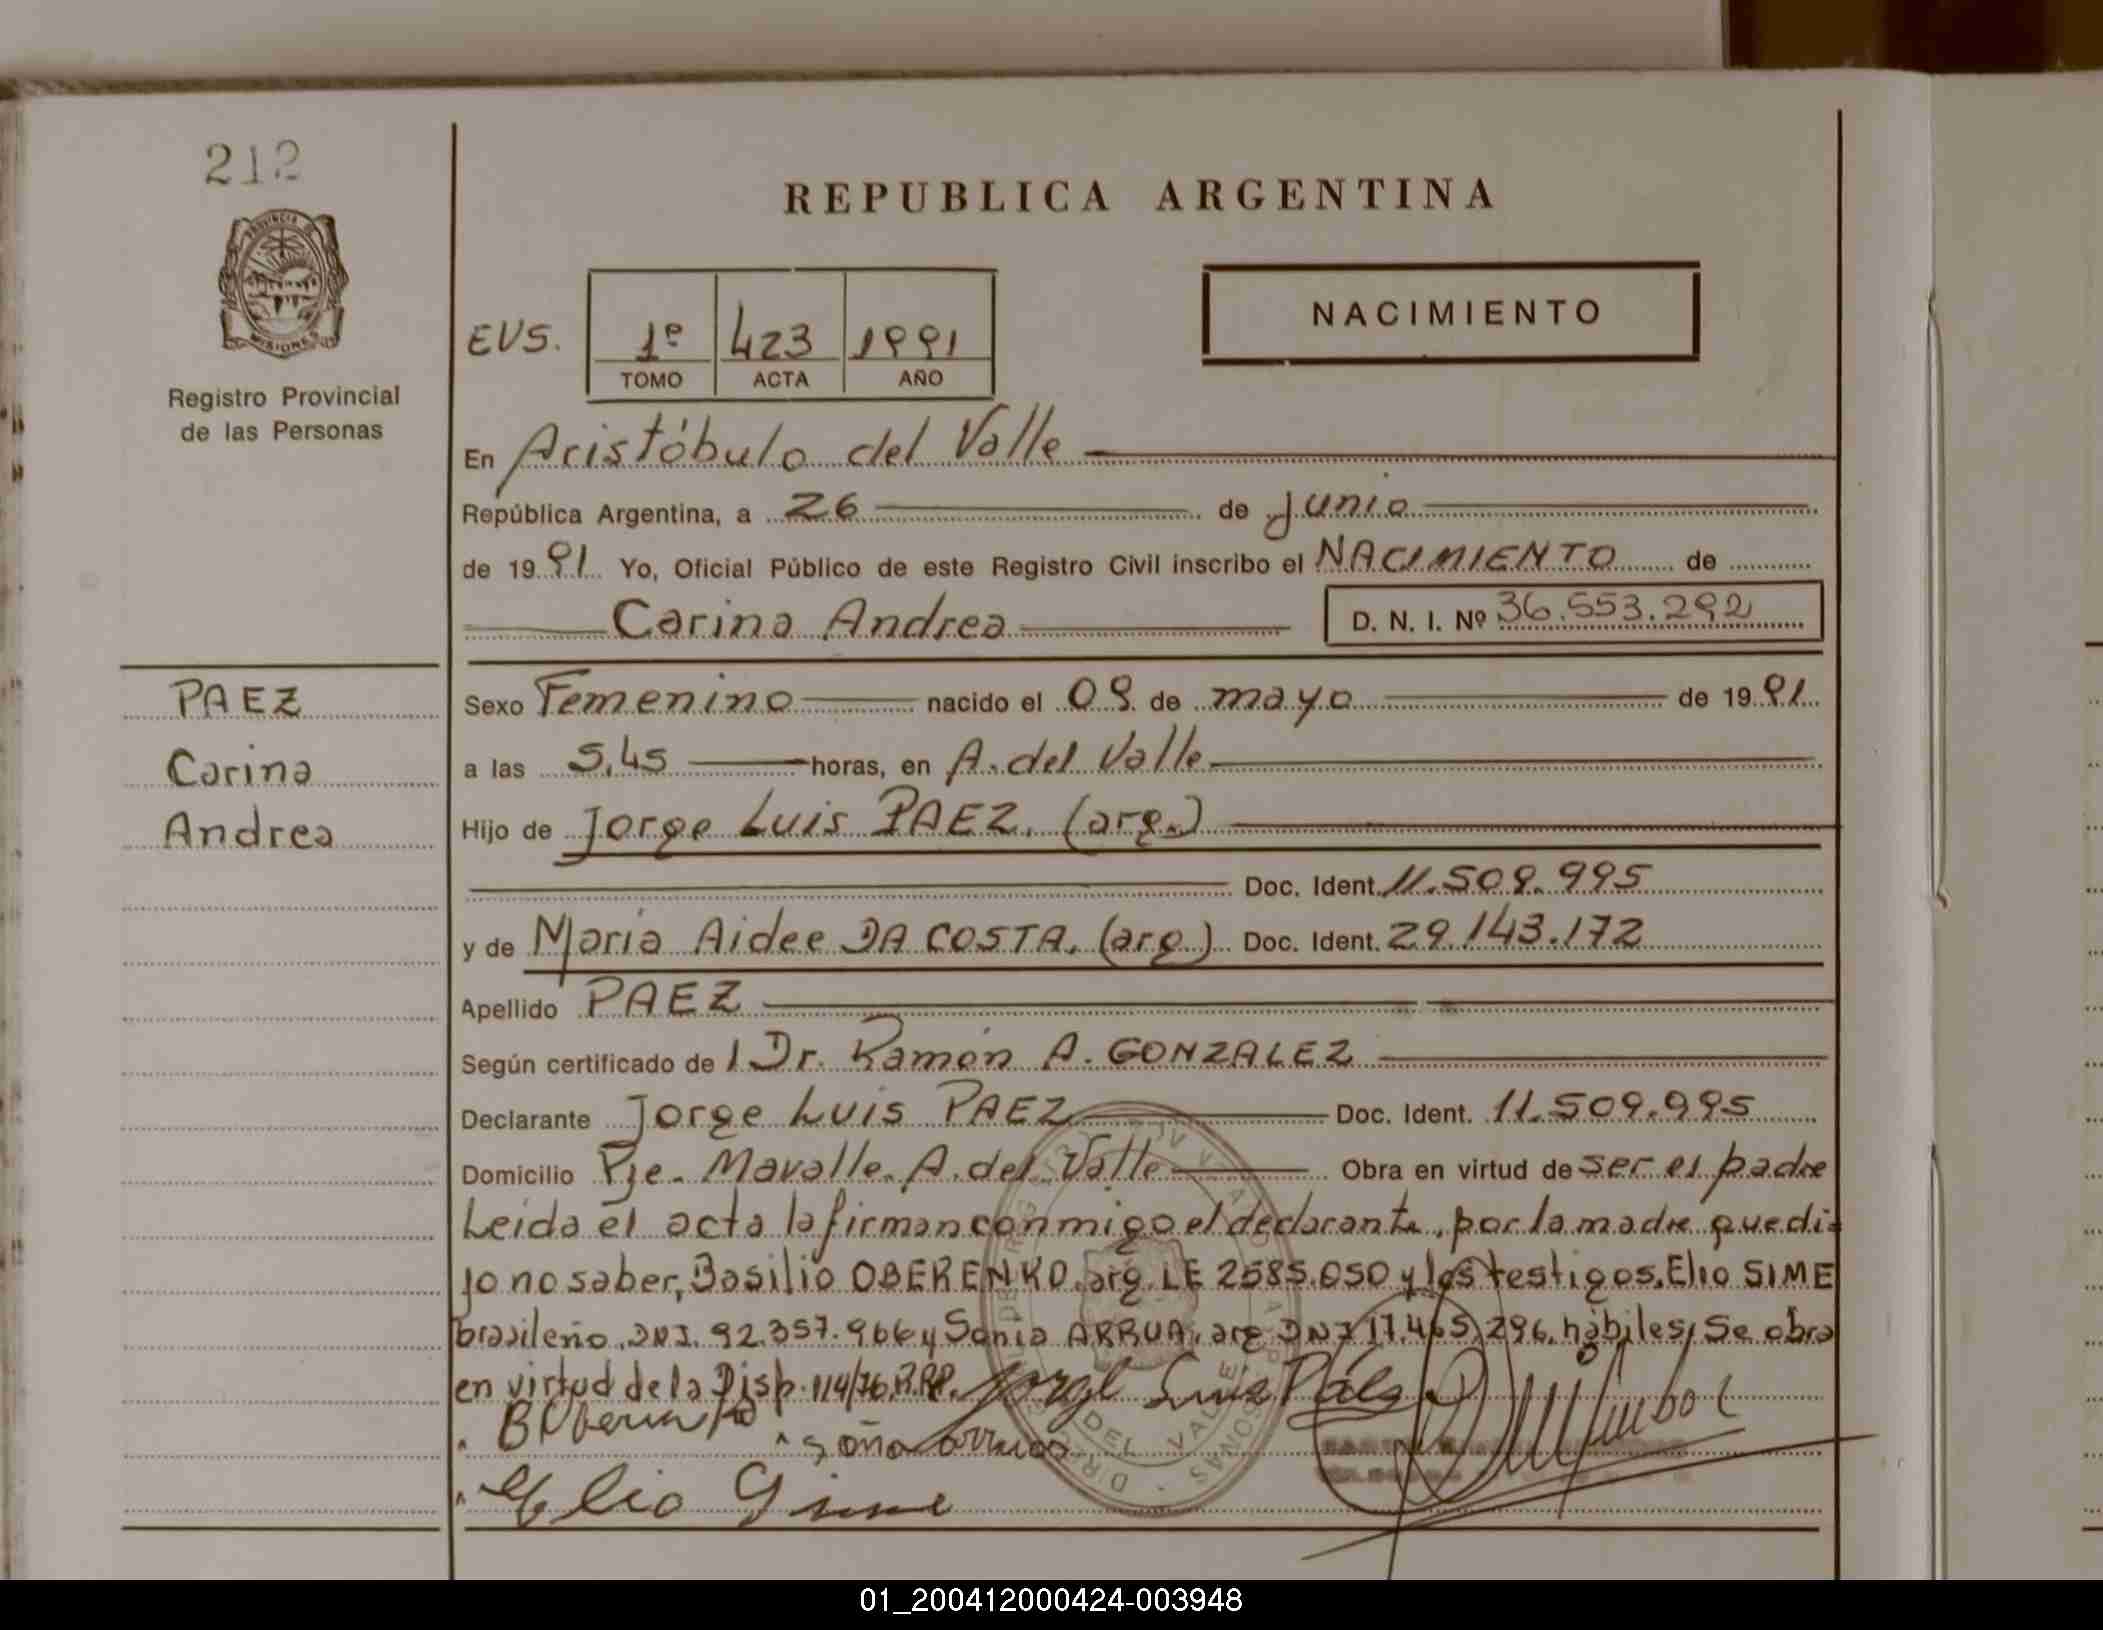 212
PROVINCIA DE
MISIONES
Registro Provincial
de las Personas
REPUBLICA ARGENTINA
NACIMIENTO
EVS. 1º 423 1991
TOMO ACTA AÑO
En Aristóbulo del Valle
República Argentina, a 26 de junio
de 1991 Yo, Oficial Público de este Registro Civil inscribo el NACIMIENTO de
Carina Andrea D. N. I. Nº 36.553.292
PAEZ
Carina
Andrea
Sexo Femenino nacido el 09 de mayo de 1991
a las 5,45 horas, en A. del Valle
Hijo de Jorge Luis PAEZ. (arg.)
Doc. Ident. 11.509.995
y de Maria Aidee DA COSTA. (arg.) Doc. Ident. 29.143.172
Apellido PAEZ
Según certificado de l Dr. Ramón A. GONZALEZ
Declarante Jorge Luis PAEZ Doc. Ident. 11.509.995
Domicilio Pje. Mavalle. A. del Valle Obra en virtud de ser el padre
Leida el acta la firman conmigo el declarante, por la madre que di=
jo no saber, Basilio OBERENKO. arg. LE 2585.050 y los testigos. Elio SIME
brasileño. DNI. 92.357.966 y Sonia ARRUA. arg DNI 17.465.296. hábiles, Se obra
en virtud de la Disp. 114/76. R.P.P. Jorge Luis Páez
Elio Sime
DEL VALLE
01_200412000424-003948